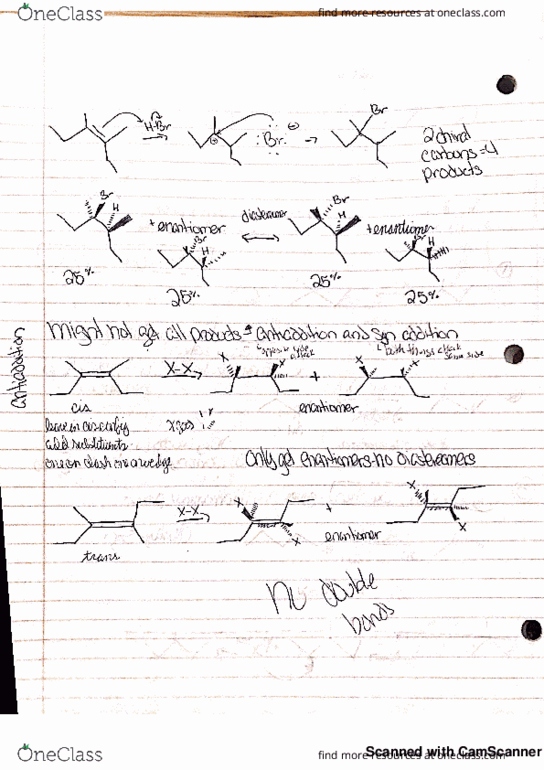 OneClass
find more resources at oneclass.com
H-Br
:Br:
Br
2 chiral
carbons = 4
products
Br
H
+ enantiomer
Br
H
25%
25%
diastereomer
Br
H
+ enantiomer
Br
H
25%
25%
Might not get all products → antiaddition and syn addition
opposite side
attack
both things attack
same side
Antiaddition
X-X
X
X
+
X
X
cis
enantiomer
leave in cis config
add substituents
one on dash one on wedge
only get enantiomers-no diastereomers
X-X
X
X
+
X
X
enantiomer
trans
no double
bonds
Scanned with CamScanner
OneClass
find more resources at oneclass.com